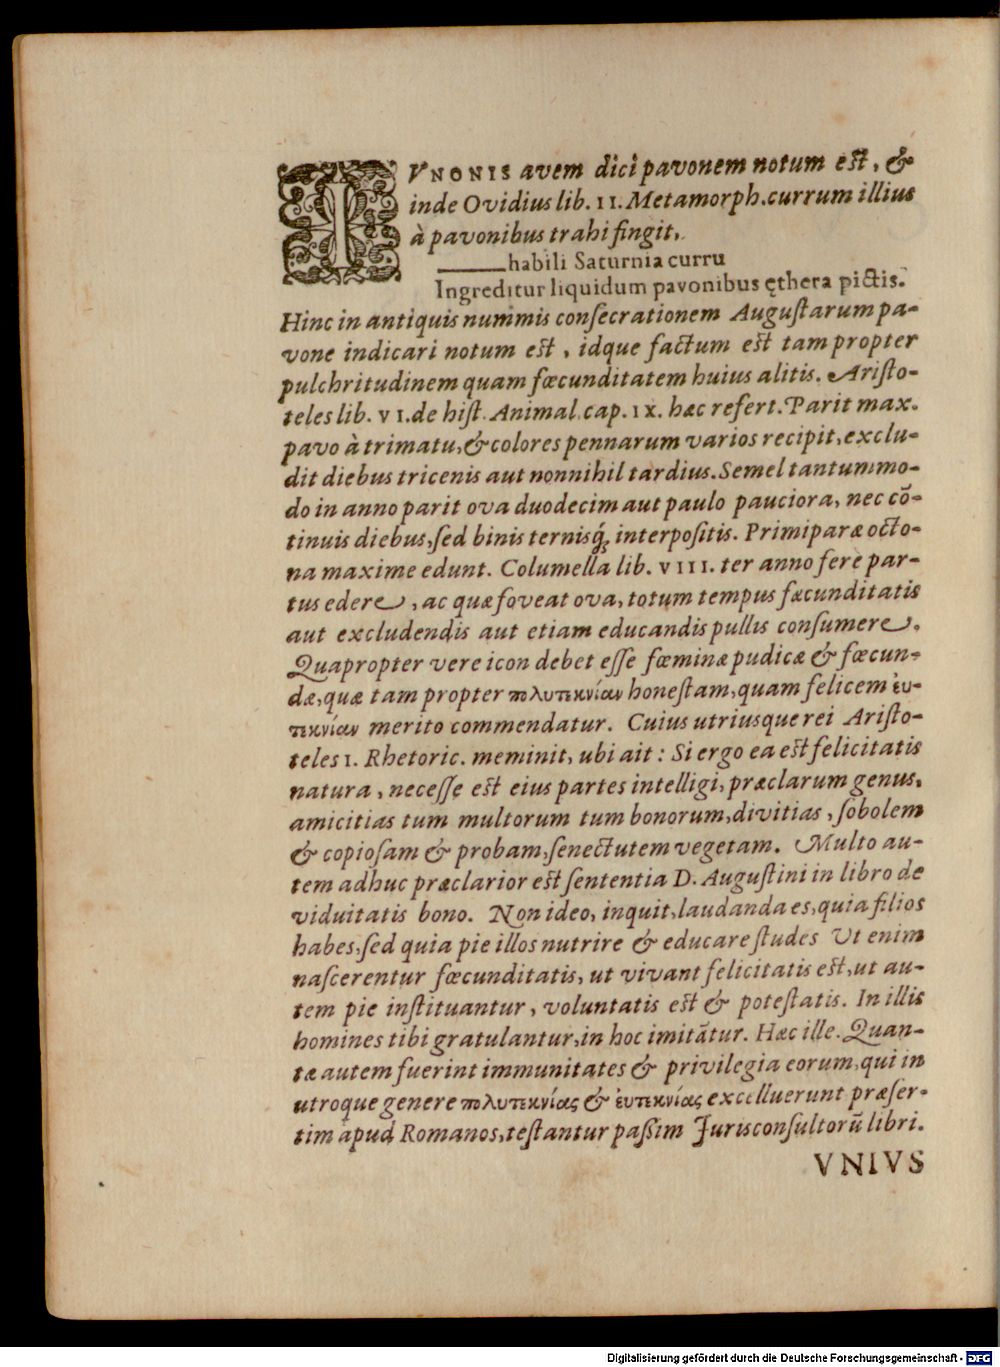 IVNONIS avem dici pavonem notum est, &
inde Ovidius lib. II. Metamorph. currum illius
à pavonibus trahi fingit,
———habili Saturnia curru
Ingreditur liquidum pavonibus ęthera pictis.
Hinc in antiquis nummis consecrationem Augustarum pa-
vone indicari notum est, idque factum est tam propter
pulchritudinem quam fœcunditatem huius alitis. Aristo-
teles lib. VI. de hist. Animal. cap. IX. hæc refert. Parit max.
pavo à trimatu, & colores pennarum varios recipit, exclu-
dit diebus tricenis aut nonnihil tardius. Semel tantummo-
do in anno parit ova duodecim aut paulo pauciora, nec cō-
tinuis diebus, sed binis ternisq́; interpositis. Primiparæ octo-
na maxime edunt. Columella lib. VIII. ter anno fere par-
tus edere, ac quæ foveat ova, totum tempus fæcunditatis
aut excludendis aut etiam educandis pullis consumere.
Quapropter vere icon debet esse fœminæ pudicæ & fœcun-
dæ, quæ tam propter πολυτεκνίαν honestam, quam felicem ἐυ-
τεκνίαν merito commendatur. Cuius utriusque rei Aristo-
teles 1. Rhetoric. meminit, ubi ait: Si ergo ea est felicitatis
natura, necesse est eius partes intelligi, præclarum genus,
amicitias tum multorum tum bonorum, divitias, sobolem
& copiosam & probam, senectutem vegetam. Multo au-
tem adhuc præclarior est sententia D. Augustini in libro de
viduitatis bono. Non ideo, inquit, laudanda es, quia filios
habes, sed quia pie illos nutrire & educare studes Ut enim
nascerentur fœcunditatis, ut vivant felicitatis est, ut au-
tem pie instituantur, voluntatis est & potestatis. In illis
homines tibi gratulantur, in hoc imitātur. Hæc ille. Quan-
tæ autem fuerint immunitates & privilegia eorum, qui in
utroque genere πολυτεκνίας & ἐυτεκνίας excelluerunt præser-
tim apud Romanos, testantur passim Jurisconsultorū libri.
VNIVS
Digitalisierung gefördert durch die Deutsche Forschungsgemeinschaft - DFG